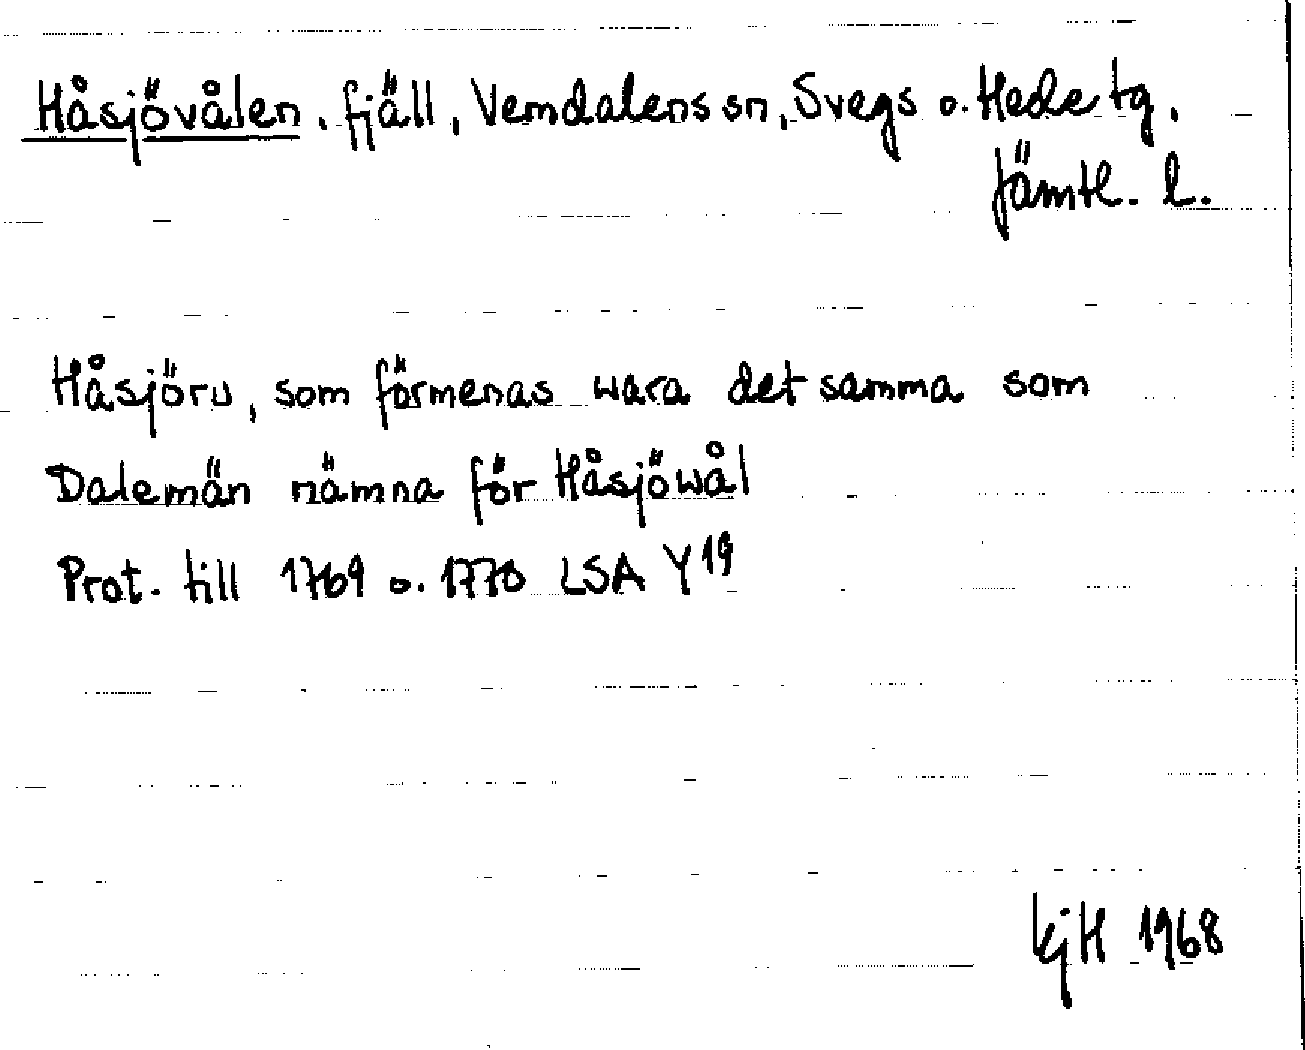 Håsjövålen, fjäll, Vemdalens sn, Svegs o. Hede tg.
Jämtl. l.
Håsjöru, som förmenas wara det samma som
Dalemän nämna för Håsjöwål
Prot. till 1769 o. 1770 LSA Y19
KjH 1968